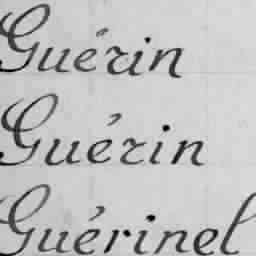 Guérin
Guérin
Guérinel